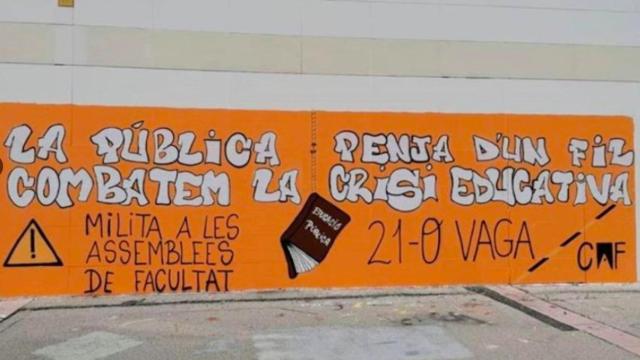 LA PÚBLICA PENJA D'UN FIL
COMBATEM LA CRISI EDUCATIVA
MILITA A LES
ASSEMBLEES
DE FACULTAT
EDUCACIÓ
PÚBLICA
21-O VAGA
!